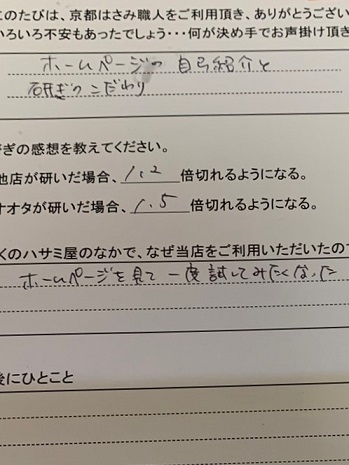 このたびは、京都はさみ職人をご利用頂き、ありがとうござい
いろいろ不安もあったでしょう・・・何が決め手でお声掛け頂き
ホームページの 自己紹介と
研ぎのこだわり
ぎの感想を教えてください。
他店が研いだ場合、1.2 倍切れるようになる。
オオタが研いだ場合、1.5 倍切れるようになる。
くのハサミ屋のなかで、なぜ当店をご利用いただいたので
ホームページを見て 一度試してみたくなった
後にひとこと